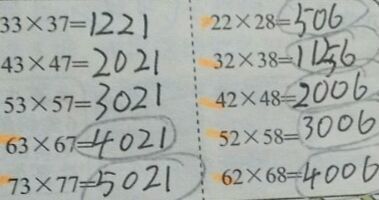 33×37=1221
43×47=2021
53×57=3021
63×67=4021
73×77=5021
22×28=506
32×38=
42×48=2006
52×58=3006
62×68=4006